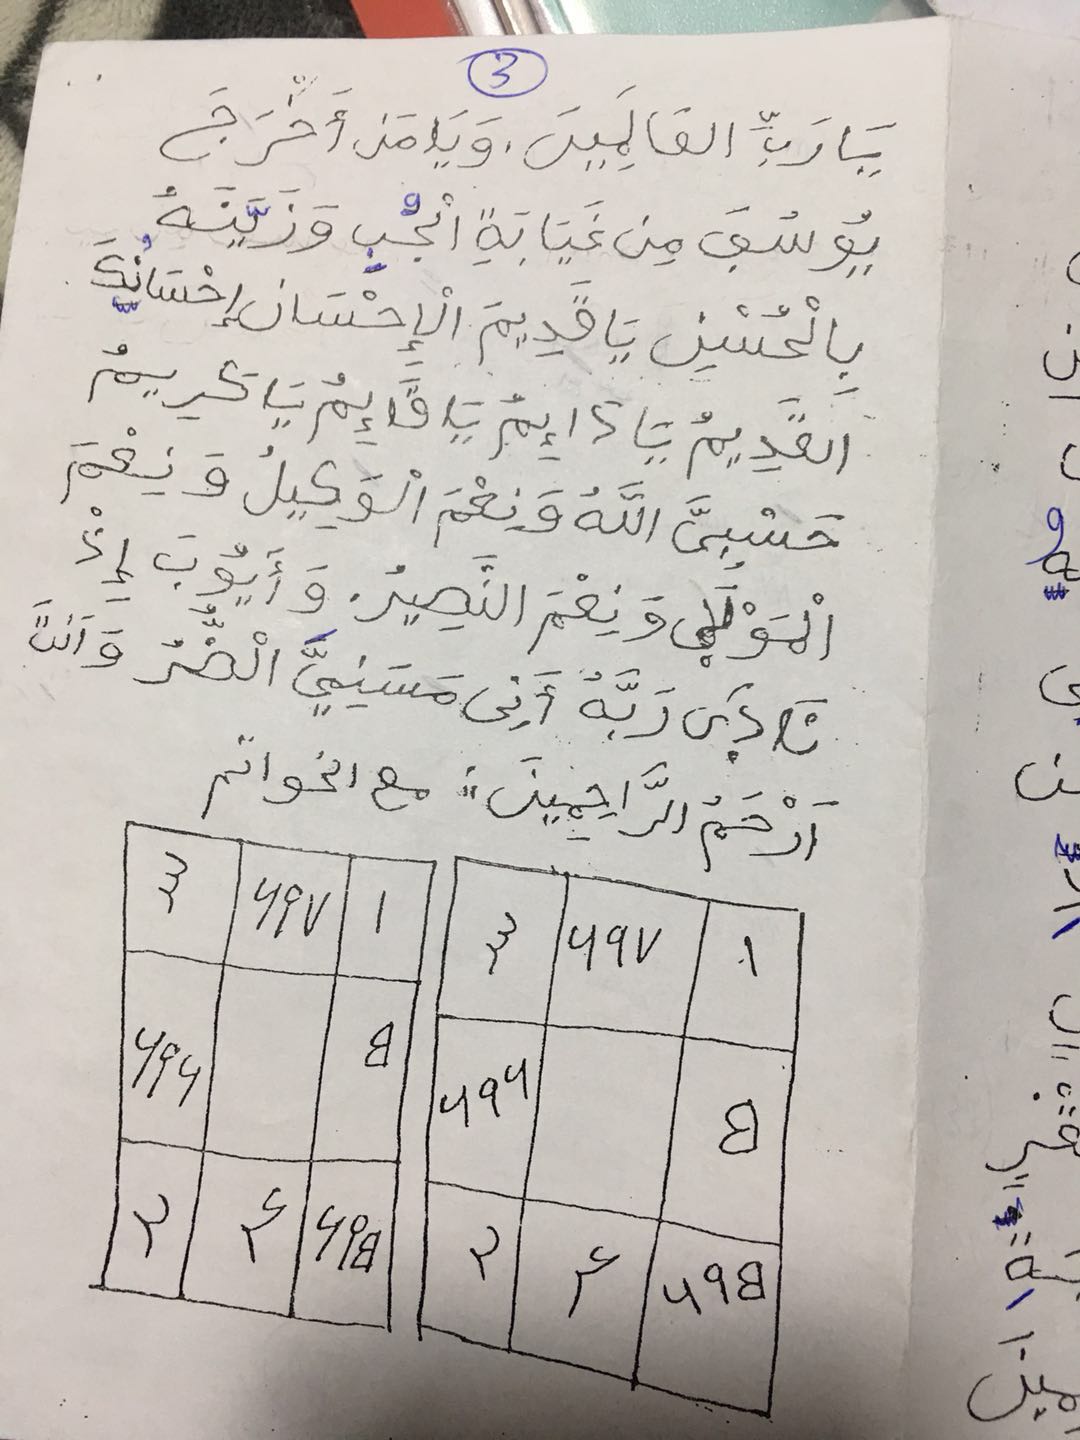 3
يَارَبِّ العَالَمِينَ. وَيَامَن أَخْرَجَ
يُوسُفَ مِن غَيَابَةِ الْجُبِّ وَزَيَّنَهُ
بِالْحُسْنِ يَا قَدِيمَ الْإِحْسَانِ إِحْسَانُكَ
القَدِيمُ يَادَايِمُ يَا قَايِمُ يَا كَرِيمُ
حَسْبِيَّ اللَّهُ وَنِعْمَ الْوَكِيلُ وَنِعْمَ
الْمَوْلَى وَنِعْمَ النَّصِيرُ. وَأَيُّوبَ إِذْ
نَادَى رَبَّهُ أَنِى مَسَنِيَّ الْضُّرُ وَأَنتَ
أَرْحَمُ الرَّاحِمِينَ: مع الخواتم
٣ ٦٩٧ ١
٦٩٦ B
٢ ٤ ٦٩B
٣ ٦٩٧ ١
٦٩٦ B
٢ ٤ ٦٩B